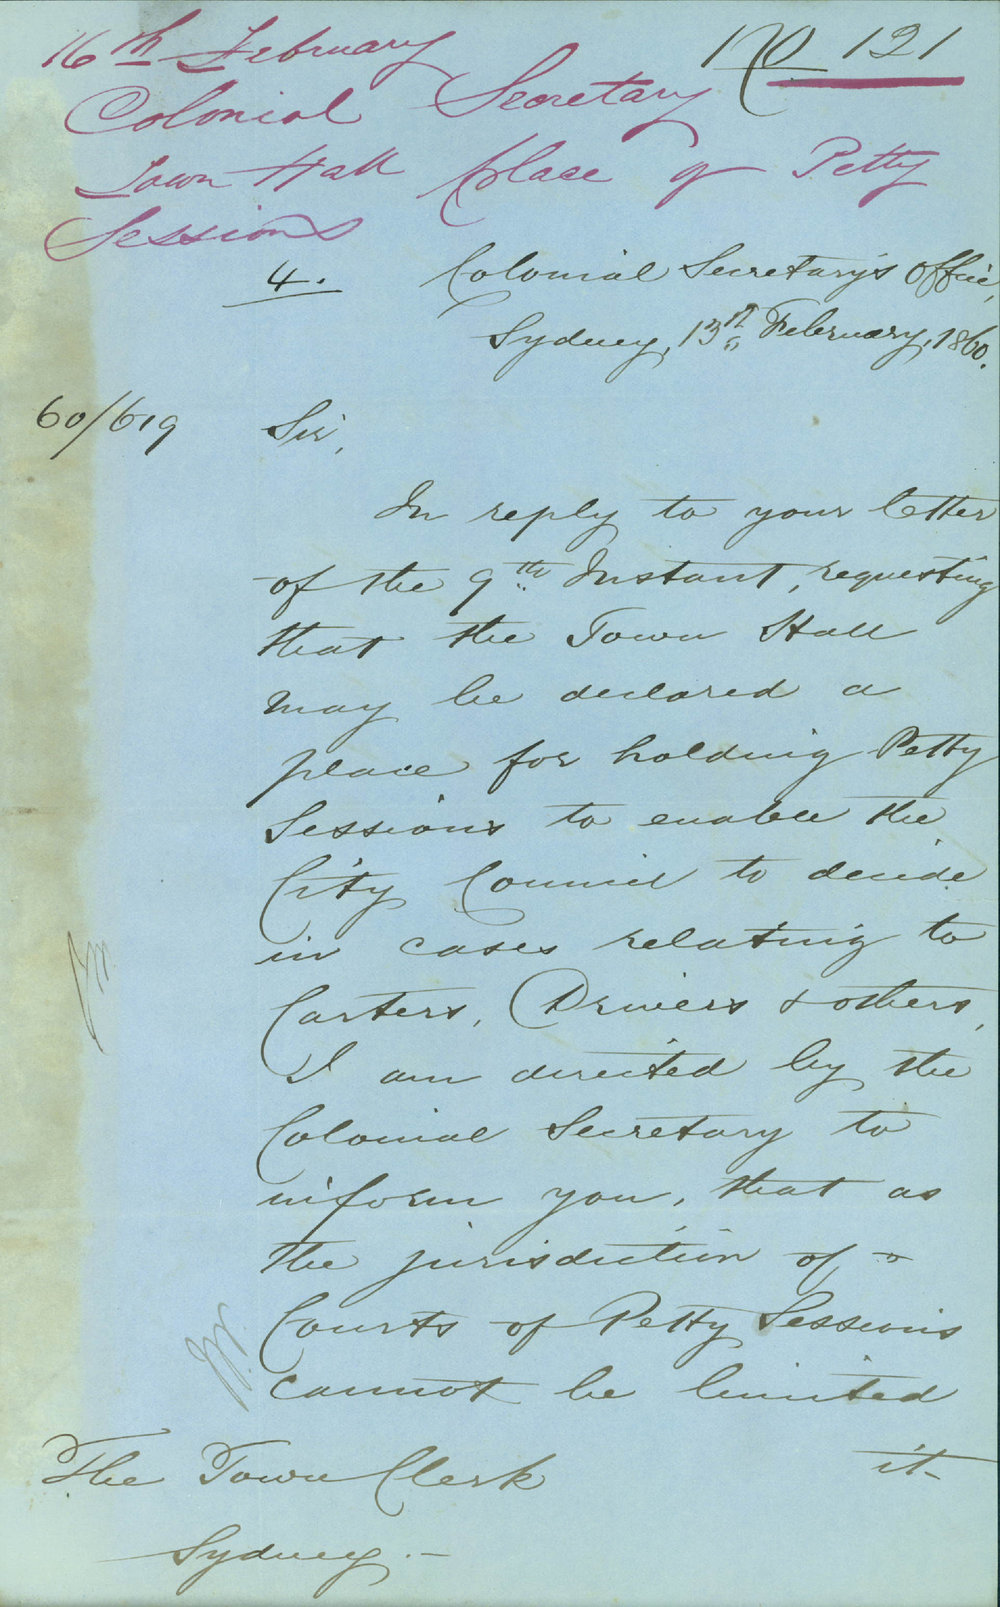 16th February
No 121
Colonial Secretary
Town Hall Place of Petty
Sessions
4.
Colonial Secretary's Office,
Sydney, 13th February, 1860.
60/619
Sir,
In reply to your letter
of the 9th Instant, requesting
that the Town Hall
may be declared a
place for holding Petty
Sessions to enable the
City Council to decide
in cases relating to
Carters, Drivers & others,
I am directed by the
Colonial Secretary to
inform you, that as
the jurisdiction of
Courts of Petty Sessions
cannot be limited
it
The Town Clerk
Sydney.